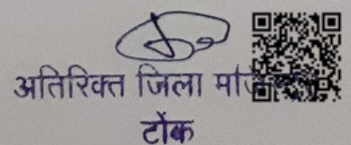 अतिरिक्त जिला
टोंक